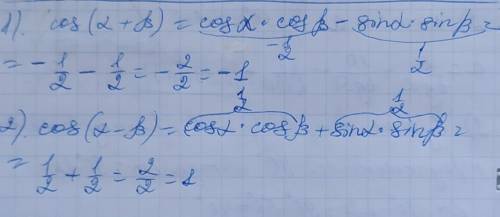 1). cos(α+β) = cosα·cosβ - sinα·sinβ =
-1/2 1/2
= -1/2 - 1/2 = -2/2 = -1
1/2 1/2
2). cos(α-β) = cosα·cosβ + sinα·sinβ =
= 1/2 + 1/2 = 2/2 = 1